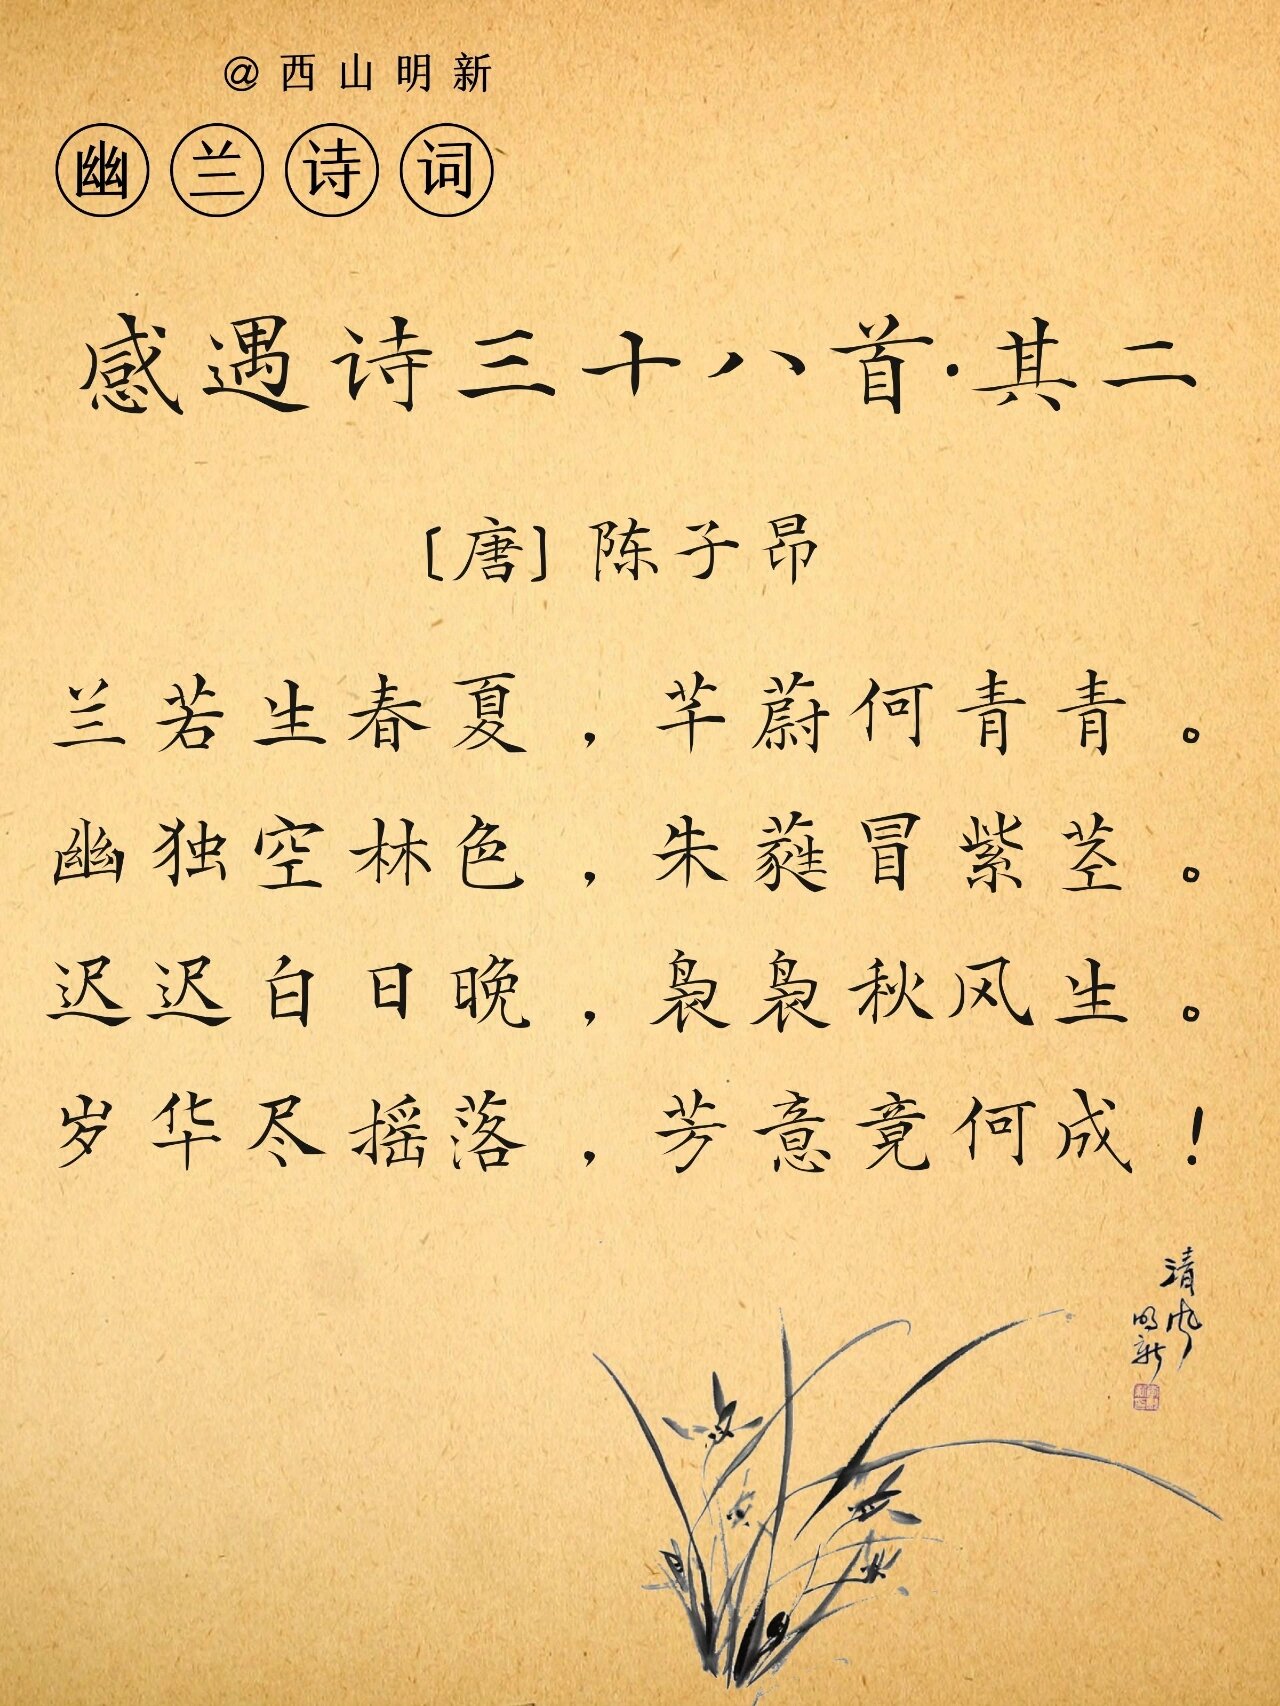 @西山明新
幽兰诗词
感遇诗三十八首·其二
[唐] 陈子昂
兰若生春夏，芊蔚何青青。
幽独空林色，朱蕤冒紫茎。
迟迟白日晚，袅袅秋风生。
岁华尽摇落，芳意竟何成！
清风
明新